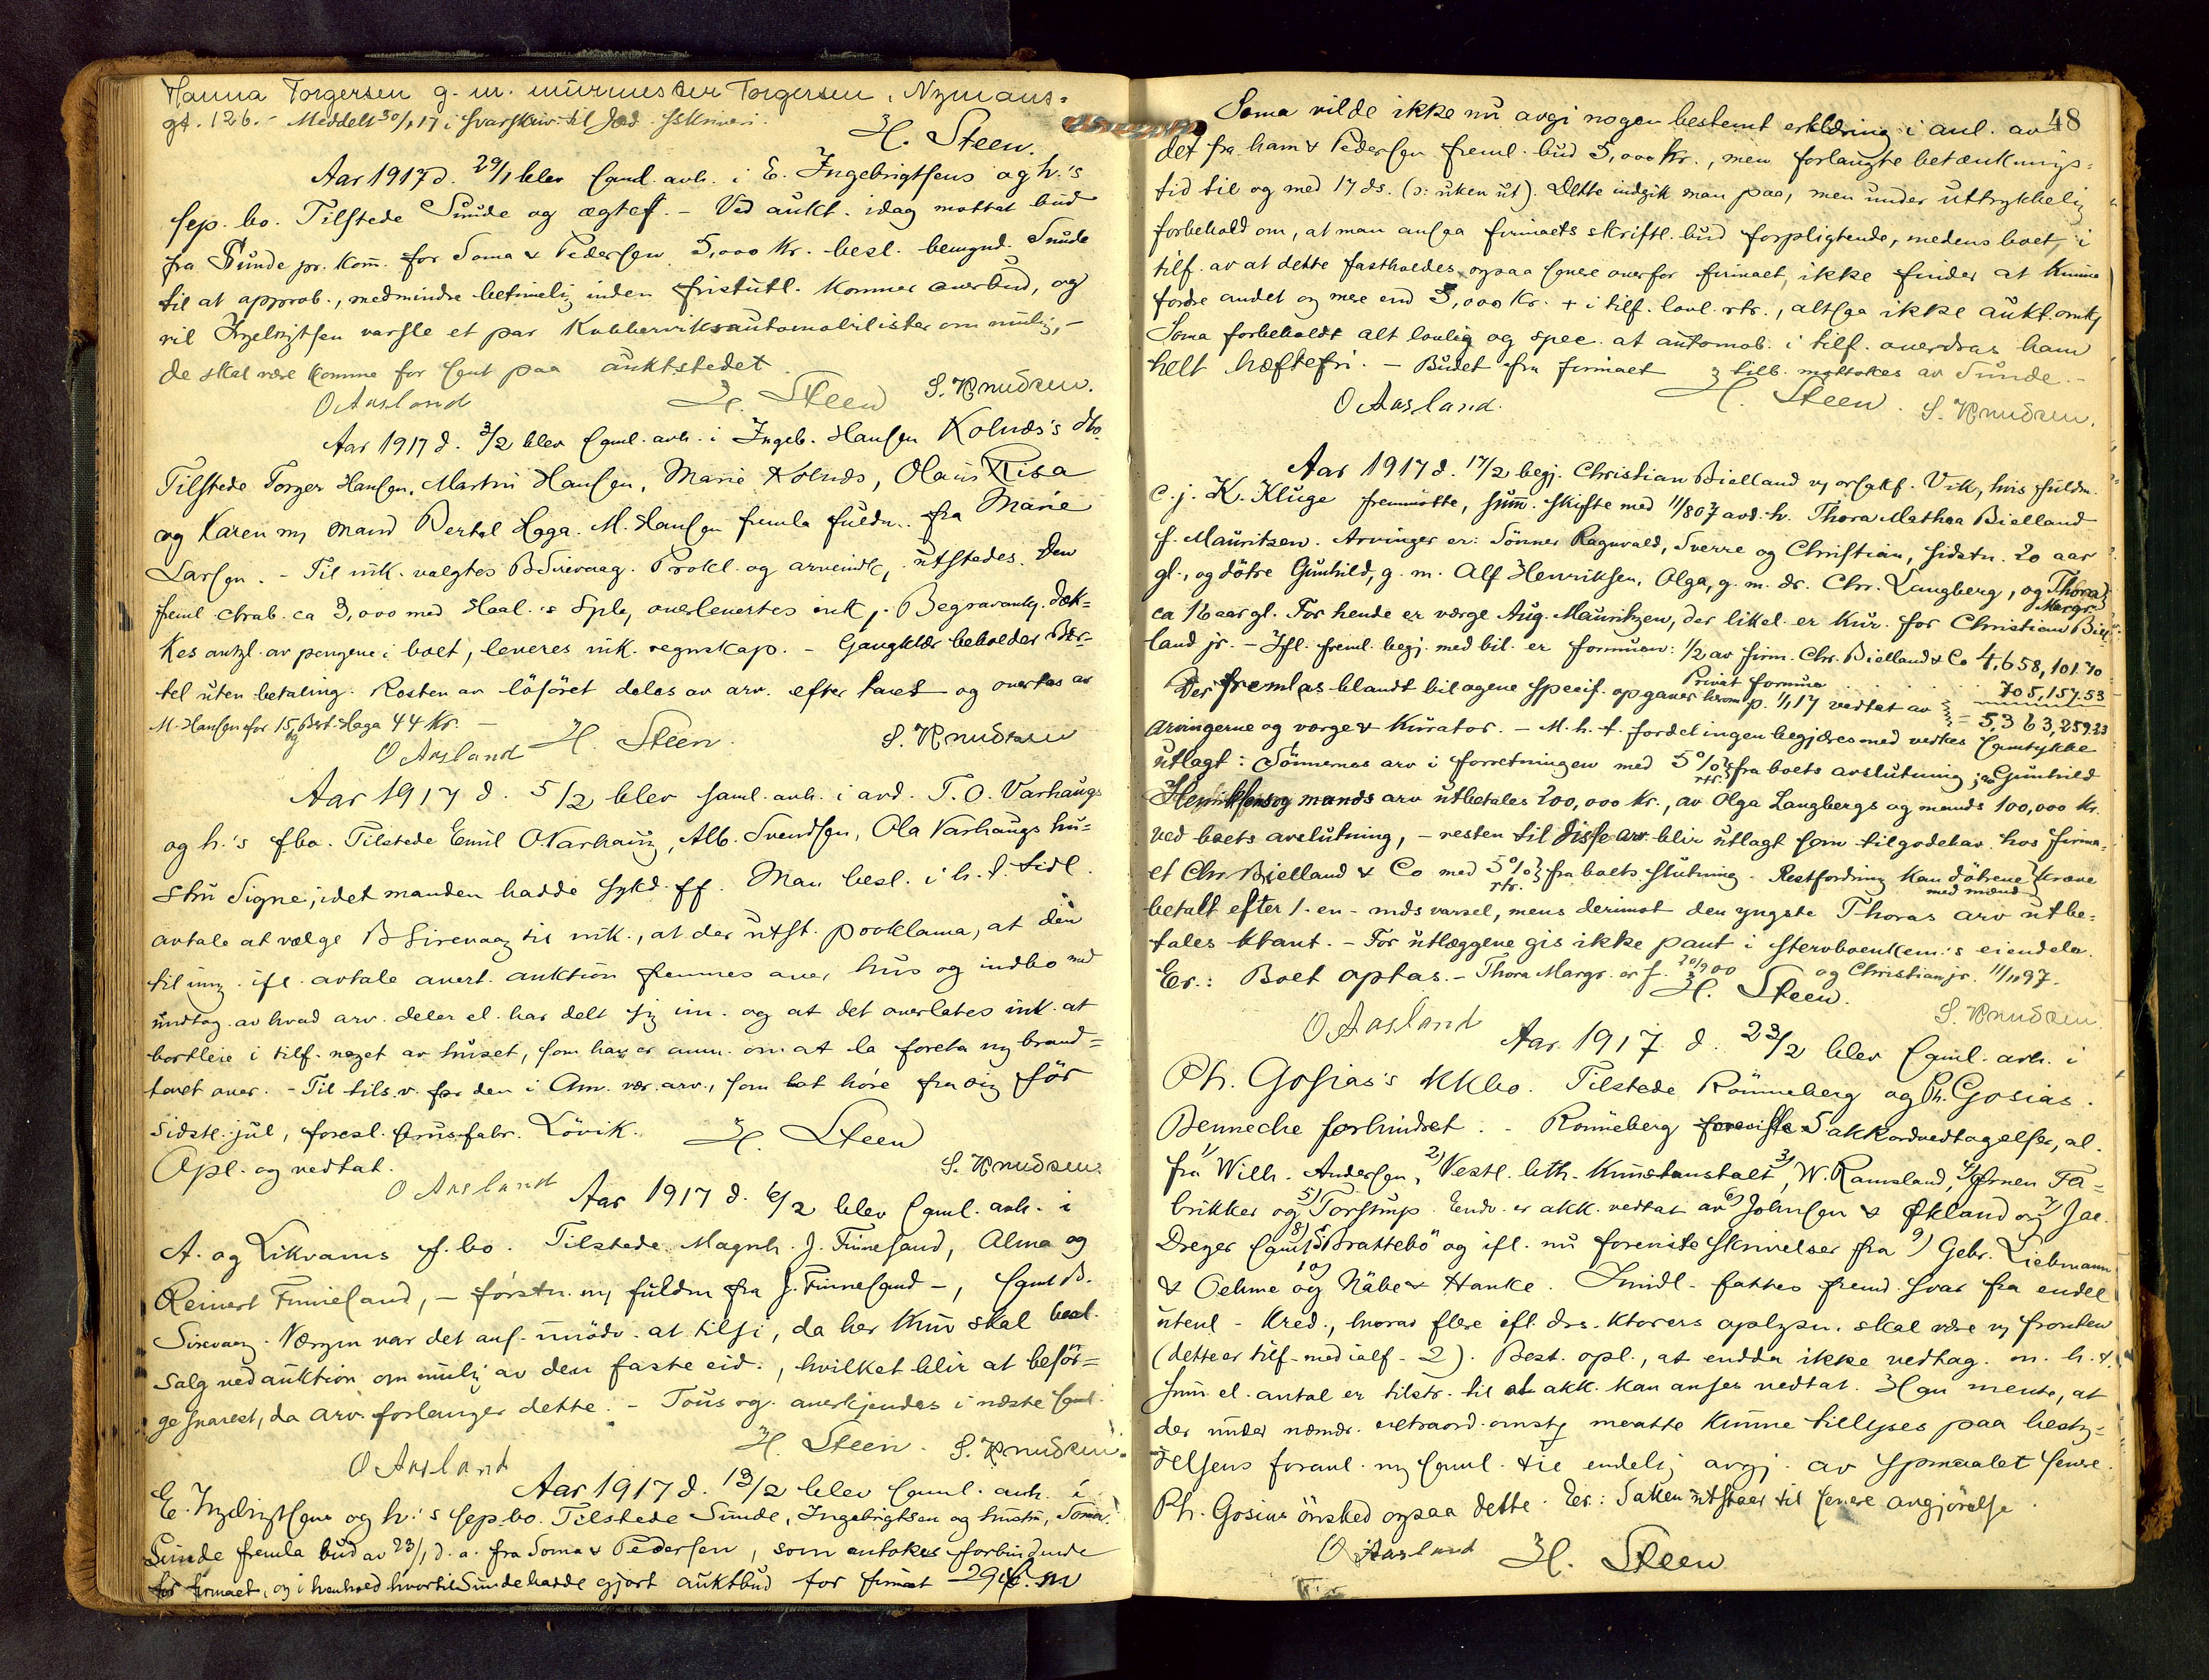 Hanna Torgersen g. m. murmester Torgersen, Nymans-
gt. 126. - Meddelt 30/1 17 i svarskriv. til Jæd. sskriveri.
H. Steen.
Aar 1917 d. 29/1 blev saml. avh. i E. Ingebrigtsens og h.'s
sep. bo. Tilstede Sunde og ægtef. - Ved aukt. idag mottat bud
fra Sunde pr. kom. for Soma & Pedersen 5,000 kr. besl. bemynd. Sunde
til at approb., medmindre betimelig inden fristutl. kommer overbud, og
vil Ingebrigtsen varsle et par Kobberviksautomobilister om mulig, -
de skal være komne for sent paa auktstedet.
O Aasland H. Steen S. Knudsen.
Aar 1917 d. 3/2 blev saml. avh. i Ingeb. Hansen Kolnes's dbo.
Tilstede Torger Hansen, Martin Hansen, Marie Kolnes, Olaus Risa
og Karen m. mand Bertel Haga. M. Hansen fremla fuldm. fra Marie
Larsen. - Til ink. valgtes B Sirevaag. Prokl. og arveindk. utstedes. Den
freml. ctrab. ca 3,000 med Haal.'s Spb. overlevertes ink. Begravomk. dæk-
kes antgl. av pengene i boet, leveres ink. regnskap. - Gangklær beholder Ber-
tel uten betaling. Resten av løsøret deles av arv. efter taxt og overtas av
M. Hansen for 15, og Bert. Haga 44 kr. -
O Aasland H. Steen. S. Knudsen
Aar 1917 d. 5/2 blev saml. avh. i avd. T. O. Varhaug
og h.'s fbo. Tilstede Emil O. Varhaug, Alb. Svendsen, Ola Varhaugs hu-
stru Signe, idet manden hadde sykd. ff. Man besl. i h. t. tidl.
avtale at vælge B Sirevaag til ink., at der utst. proklama, at den
til ifl. avtale avert. auktion fremmes over hus og indbo med
undtag. av hvad arv. deler el. har delt sig im. og at det overlates ink. at
bortleie i tilf. noget av huset, som har er anm. om at la foreta ny brand-
taxt over. - Til tils.v. for den i Am. vær. arv., som lot høre fra sig før
sidstl. jul, foresl. brusfabr. Løvik. H. Steen
Opl. og vedtat. O Aasland S. Knudsen.
Aar 1917 d. 6/2 blev saml. avh. i
A. og Likvams f. bo. Tilstede Magnh. J. Finnesand, Alma og
Reinert Finnesand, - førstn. m. fuldm fra J. Finnesand -, samt B.
Sirevaag. Vergen var det ans. unødv. at tilsi, da her kun skal besl.
salg ved auktion om mulig av den faste eid., hvilket blir at besør-
ge snarest, da arv. forlanger dette. - Tous og. anerkjendes i næste saml.
O Aasland H. Steen. S. Knudsen.
Aar 1917 d. 13/2 blev saml. avh. i
E. Ingebrigtsens og h.'s sep. bo. Tilstede Sunde, Ingebrigtsen og hustru, Soma.
Sunde fremla bud av 23/1 d. a. fra Soma & Pedersen, som antokes forbindende
for firmaet, og i henhold hvortil Sunde hadde gjort auktbud for firmaet 29 f. m
48
Soma vilde ikke nu avgi nogen bestemt erklæring i anl. av
det fra ham & Pedersen freml. bud 5,000 kr., men forlangte betænknings-
tid til og med 17 ds. (ɔ: uken ut). Dette indgik man paa, men under uttrykkelig
forbehold om, at man ansaa firmaets skriftl. bud forpligtende, medens boet, i
tilf. av at dette fastholdes ogsaa senere overfor firmaet, ikke finder at kunne
fordre andet og mere end 5,000 kr. + i tilf. lovl. rtr., altsaa ikke aukt.omk.
Soma forbeholdt alt lovlig og spec. at automob. i tilf. overdras ham
helt hæftefri. - Budet fra firmaet tilb. mottokes av Sunde. -
O Aasland. H. Steen. S. Knudsen.
Aar 1917 d. 17/2 begj. Christian Bielland v. orsakf. Vik, hvis fuldm.
c. j. K. Kluge fremmøtte, sum. skifte med 11/8 07 avd. h. Thora Mathea Bielland
f. Mauritzen. Arvinger er: Sønner Ragnvald, Sverre og Christian, sidstn. 20 aar
gl., og døtre Gunhild, g. m. Alf Henriksen, Olga, g. m. dr. Chr. Langberg, og Thora Margr.
ca 16 aar gl. For hende er verge Aug. Mauritzen, der likel. er kur. for Christian Biel-
land jr. - Ifl. freml. begj. med bil. er formuen: 1/2 av firm. Chr. Bielland & Co 4,658,101.70
Privat formue 705,157.53
Der fremlas blandt bilagene specif. opgaver herom p. 1/1 17 vedtat av = 5,363,259.23
arvingerne og verge & kurator. - M. h. t. fordelingen begjæres med verkes samtykke
utlagt: Sønnernes arv i forretningen med 5% rtr. fra boets avslutning; av Gunhild
Henriksens og mands arv utbetales 200,000 kr., av Olga Langbergs og mands 100,000 kr.
ved boets avslutning, - resten til disse arv. blir utlagt som tilgodehav. hos firma-
et Chr. Bielland & Co med 5% rtr. fra boets slutning. Restfordring kan døtrene med mænd kræve
betalt efter 1 - en - mds varsel, mens derimot den yngste Thoras arv utbe-
tales ktant. - For utlæggene gis ikke pant i stervboenkem.'s eiendele.
Er.: Boet optas. - Thora Margr. er f. 20/9 00 og Christian jr. 11/11 97.
H. Steen.
O Aasland S. Knudsen.
Aar 1917 d. 23/2 blev saml. avh. i
Ph. Gosias's kkbo. Tilstede Rønneberg og Ph. Gosias.
Benneche forhindret. - Rønneberg foreviste 5 akkordvedtagelser, al.
fra 1) Wilh. Andersen, 2) Vestl. lith. Kunstanstalt, 3) W. Ramsland, 4) Ørnen Fa-
brikker og 5) Torsump. Endv. er akk. vedtat av 6) Johnsen & Økland og 7) Jac.
Dreyer samt 8) "Brattebø" og ifl. nu foreviste skrivelser fra 9) Gebr. Liebmann
& Oehme og 10) Näbe & Hanke. Imidl. fattes fremd. svar fra endel
utenl. kred., hvorav flere ifl. drs. ktorers oplysn. skal være v. fronten
(dette er tilf. med ialf. 2). Best. opl., at endda ikke vedtag. m. h. t.
sum el. antal er tilstr. til at akk. kan anses vedtat. Han mente, at
der under nævnte extraord. omst. maatte kunne tillyses paa besty-
relsens foranl. ny saml. til endelig avgj. av spmaalet senere.
Ph. Gosias ønsked ogsaa dette. Er.: Saken utstaar til senere avgjørelse.
O Aasland H. Steen